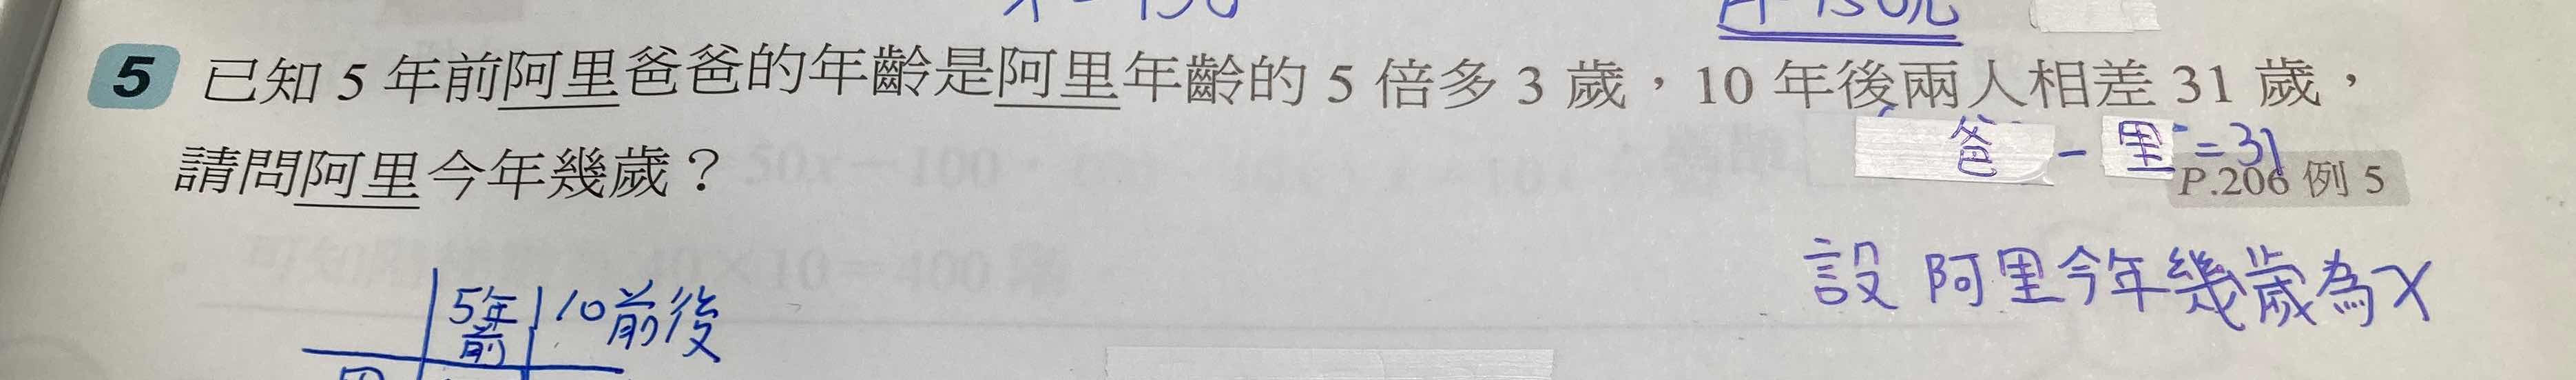 5 已知 5 年前阿里爸爸的年齡是阿里年齡的 5 倍多 3 歲，10 年後兩人相差 31 歲，
爸 - 里 = 31
請問阿里今年幾歲？
P.206 例 5
設 阿里今年幾歲為x
5年前 10前後